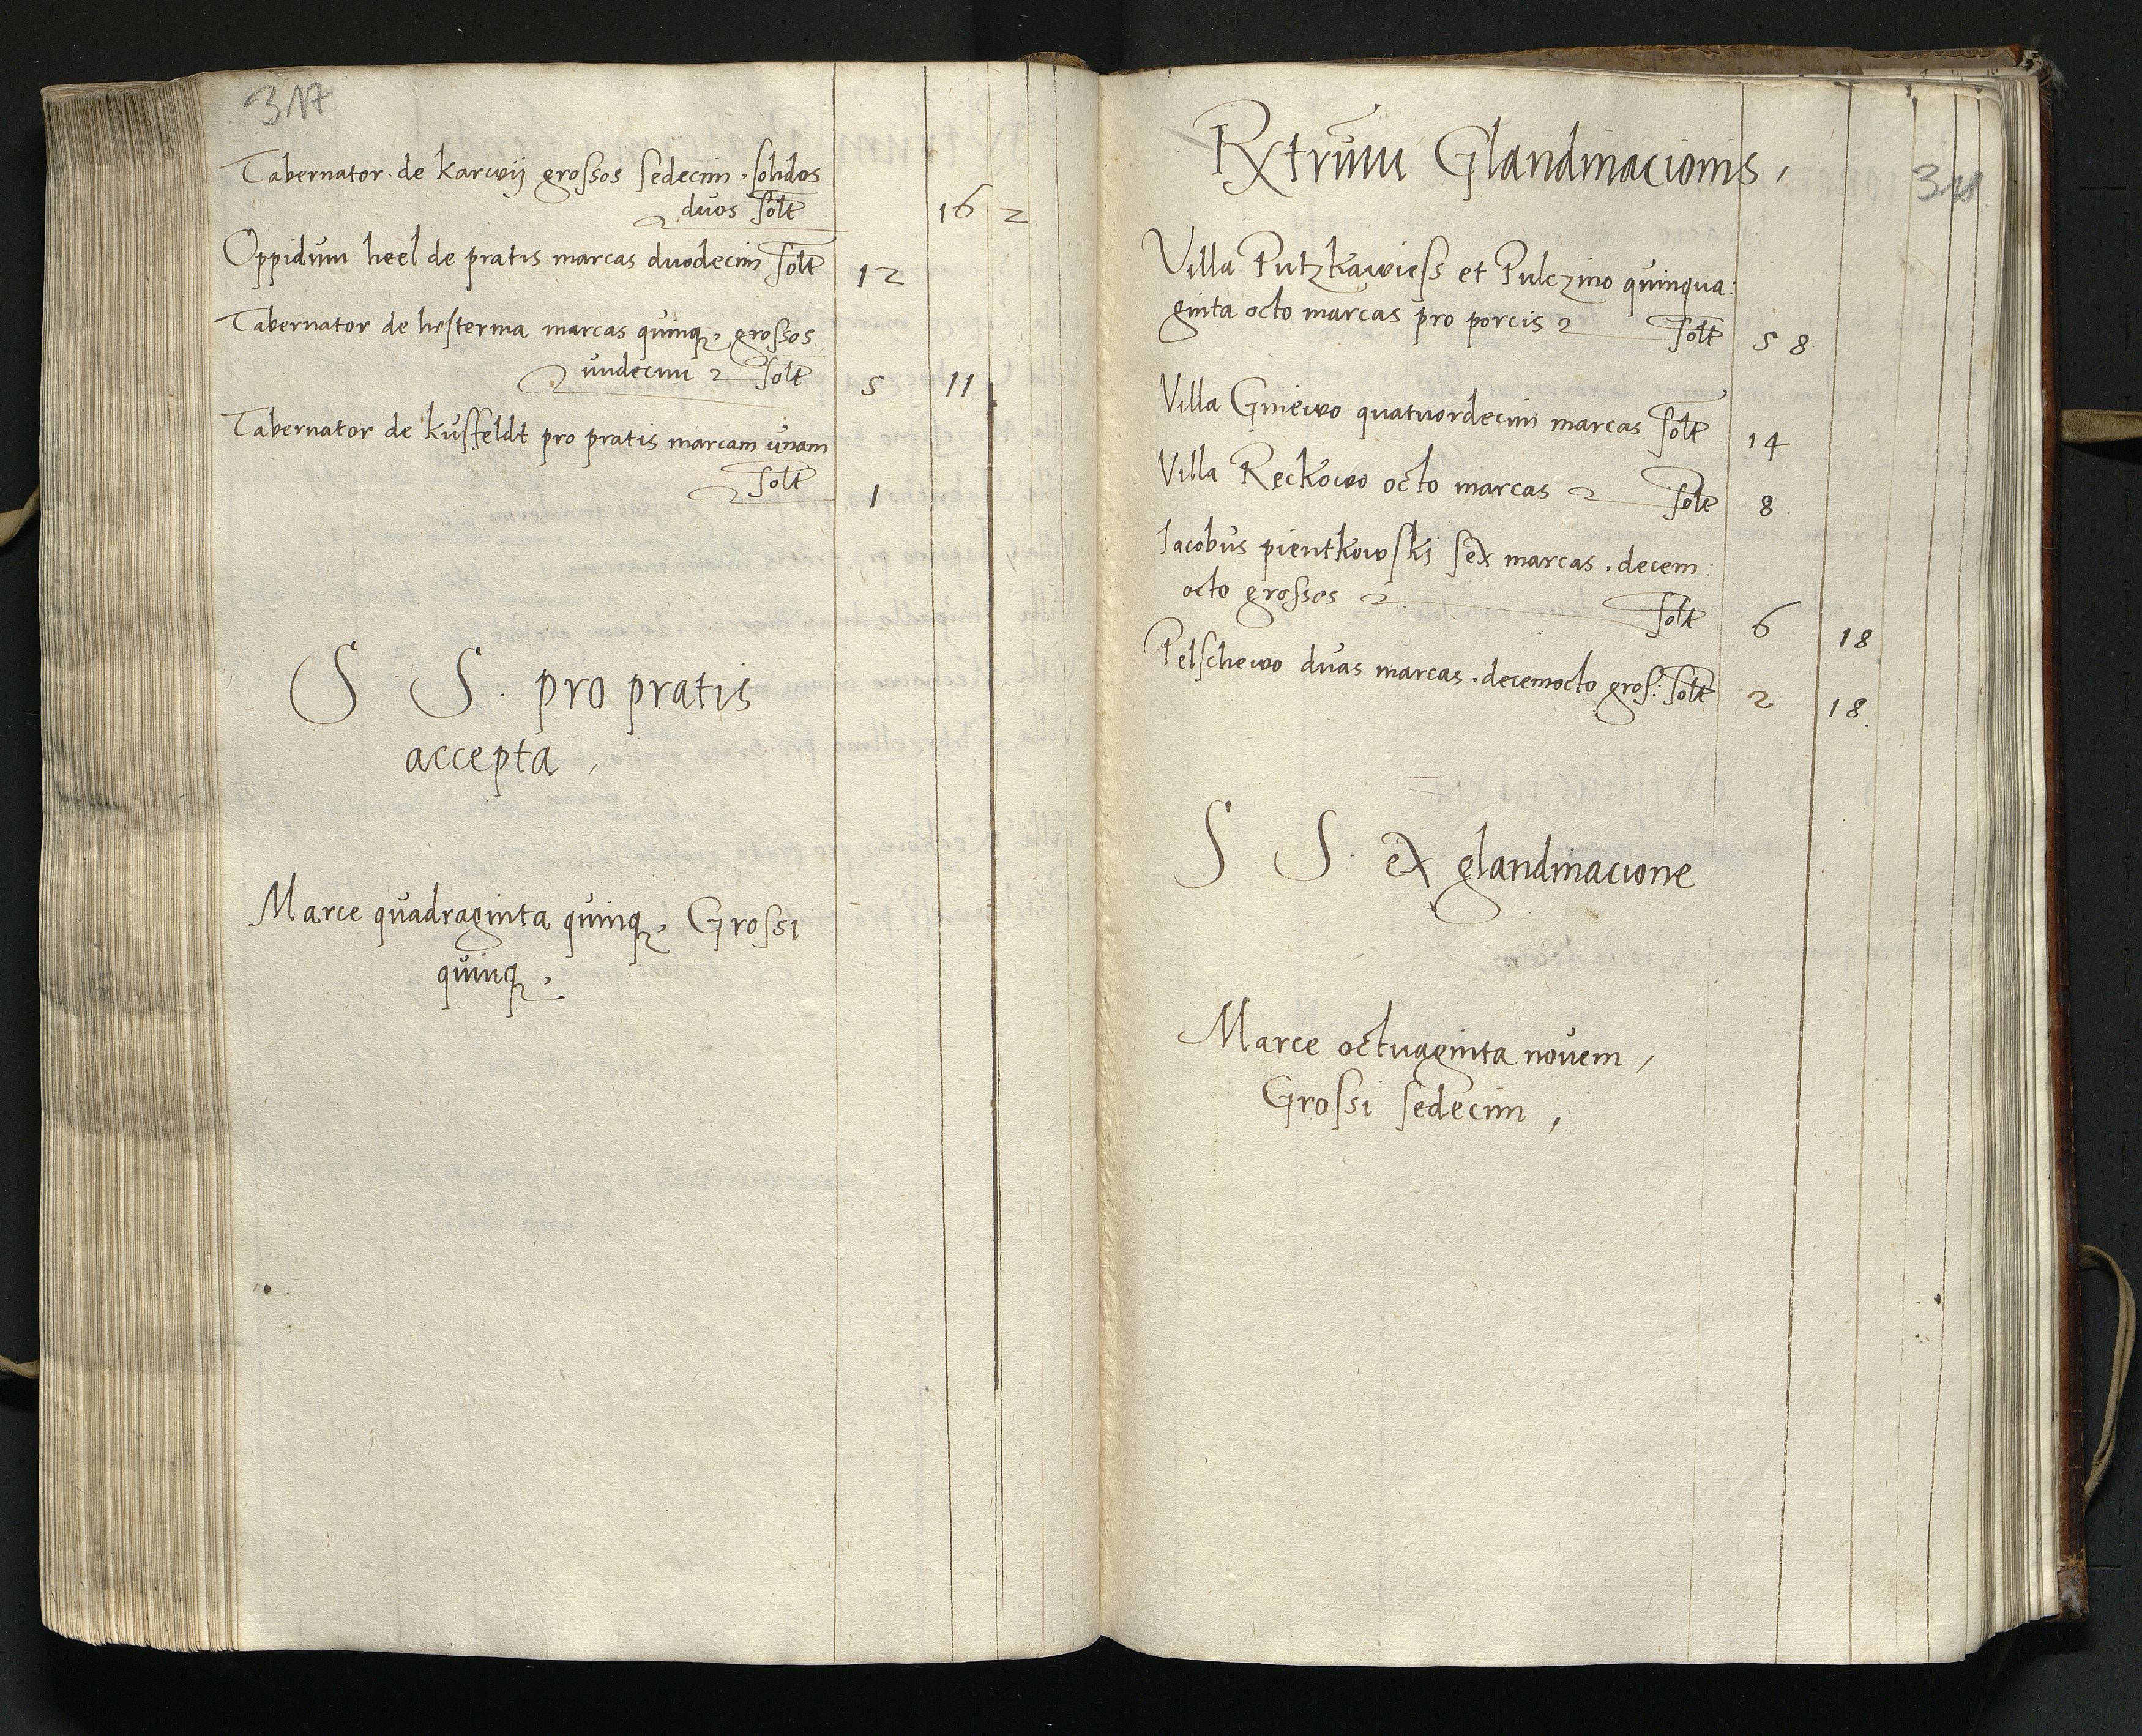 317
Tabernator de karwij grossos sedecim solidos
duos solt 16 2
Oppidum heel de pratis marcas duodecim solt 12
Tabernator de hesterma marcas quinq, grossos
undecim solt 5 11
Tabernator de kusfeldt pro pratis marcam unam
solt 1
S S. pro pratis
accepta,
Marce quadraginta quinq, Grossi
quinq,
Rxtrum Glandinacionis,
318
Villa Putzkawiess et Pulczino quinqua:
ginta octo marcas pro porcis solt 58
Villa Gniewo quatuordecim marcas solt 14
Villa Reckowo octo marcas solt 8.
Iacobus pientkowski sex marcas. decem:
octo grossos solt 6 18
Pelschewo duas marcas. decemocto gros: solt 2 18.
S S. ex glandinacione
Marce octuaginta novem,
Grossi sedecim,